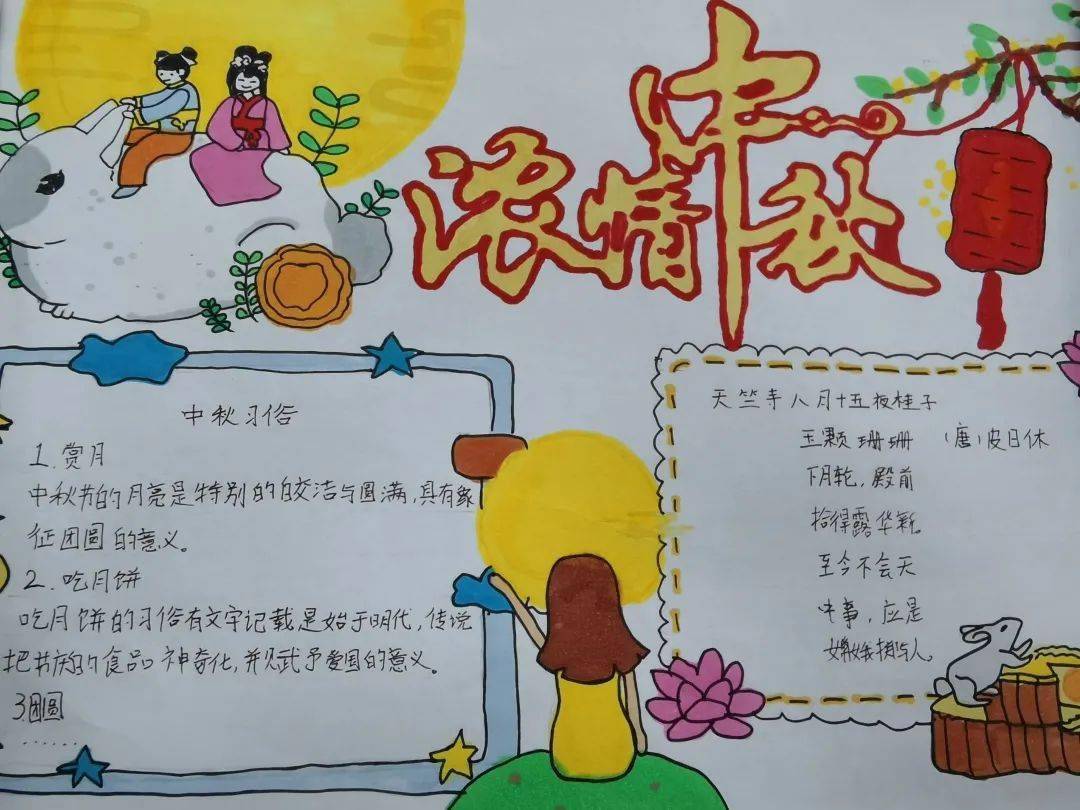 浓情中秋
中秋习俗
1.赏月
中秋节的月亮是特别的皎洁与圆满,具有象
征团圆的意义。
2.吃月饼
吃月饼的习俗有文字记载,是始于明代,传说
把节庆的食品神奇化,并赋予爱国的意义。
3.团圆
……
天竺寺八月十五夜桂子
玉颗珊珊 (唐)皮日休
下月轮,殿前
拾得露华新。
至今不会天
中事,应是
嫦娥掷与人。